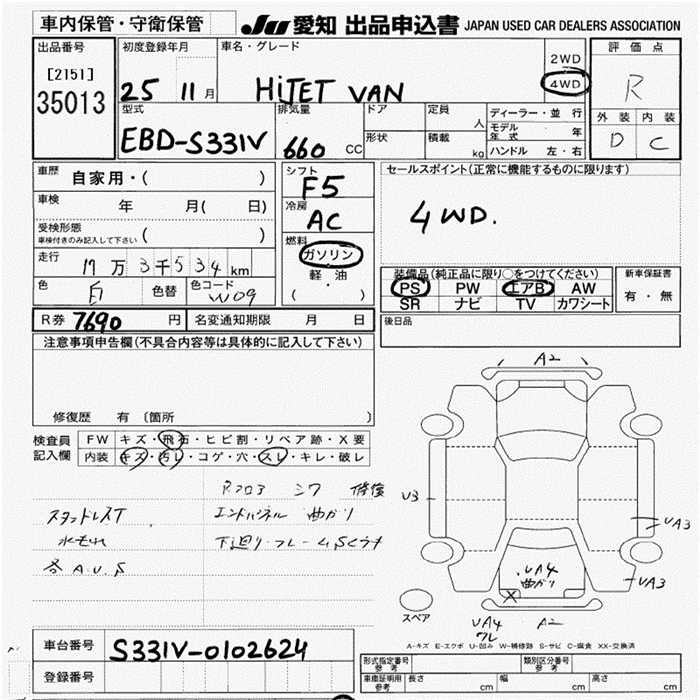 車内保管・守衛保管
JU 愛知 出品申込書 JAPAN USED CAR DEALERS ASSOCIATION
出品番号 初度登録年月 車名・グレード 評価点
[2151]
35013
25 11月 HiJET VAN
2WD
4WD
R
型式 排気量 ドア 定員 人 ディーラー・並行
モデル年式 年
外装 内装
EBD-S331V 660 CC 形状 積載 kg ハンドル 左・右
D C
車歴 自家用・( )
シフト F5
セールスポイント(正常に機能するものに限ります)
車検 年 月( 日)
冷房 AC
4WD.
受検形態
車検付きのみ記入して下さい ( )
燃料 ガソリン
軽・油
( )
走行 17万3千534km
色 白 色替 色コード W09
装備品(純正品に限り○をつけてください)
PS PW エアB AW
SR ナビ TV カワシート
新車保証書
有・無
R券 7690円 名変通知期限 月 日
後日品
注意事項申告欄(不具合内容等は具体的に記入して下さい)
修復歴 有 〔箇所 〕
検査員記入欄
FW キズ・飛石・ヒビ割・リペア跡・X要
内装 キズ・汚レ・コゲ・穴・スレ・キレ・破レ
Rフロア シワ 修復
スタッドレスT エンドパネル 曲がり
水もれ 下廻り・フレームSくうち
各A.U.S
A2
U3
UA3
UA3
UA4
曲がり
X
スペア
UA4
ワレ
A2
A-キズ E-エクボ U-凹み W-補修跡 S-サビ C-腐食 XX-交換済
車台番号 S331V-0102624
登録番号
形式指定番号 参考 類別区分番号 参考
車庫証明用 参考 長さ cm 幅 cm 高さ cm